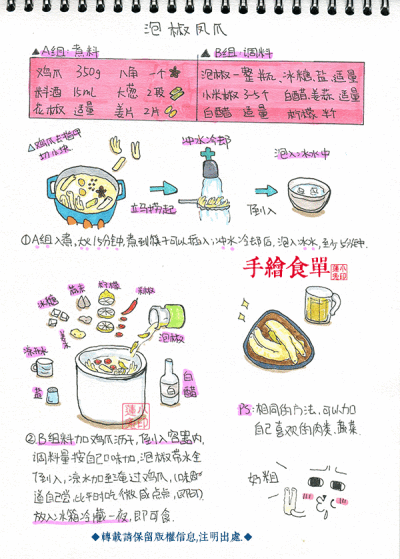 泡椒凤爪
▲A组:煮料
▲B组:调料
鸡爪 350g 八角 一个
料酒 15ml 大葱 2段
花椒 适量 姜片 2片
泡椒一整瓶、冰糖、盐、适量
小米椒 3-5个 白醋、姜蒜、适量
白醋 适量 柠檬 半个
△鸡爪去指甲
切小块
冲水冷却
泡入冰水中
立马捞起
倒入
①A组入煮,大火15分钟,煮到筷子可以插入;冲水冷却后,泡入冰水,至少5分钟.
手繪食單
冰糖
蒜末
柠檬
辣椒
姜末
凉开水
盐
白醋
②B组料加鸡爪沥干,倒入容器内,
调料量按自己口味加,泡椒带水全
倒入,凉水加至淹过鸡爪,口味
道自己尝,比平时吃微咸点点,即可
放入冰箱冷藏一夜,即可食.
PS:相同的方法,可以加
自己喜欢的肉类、蔬菜.
◆轉載請保留版權信息,注明出處.◆